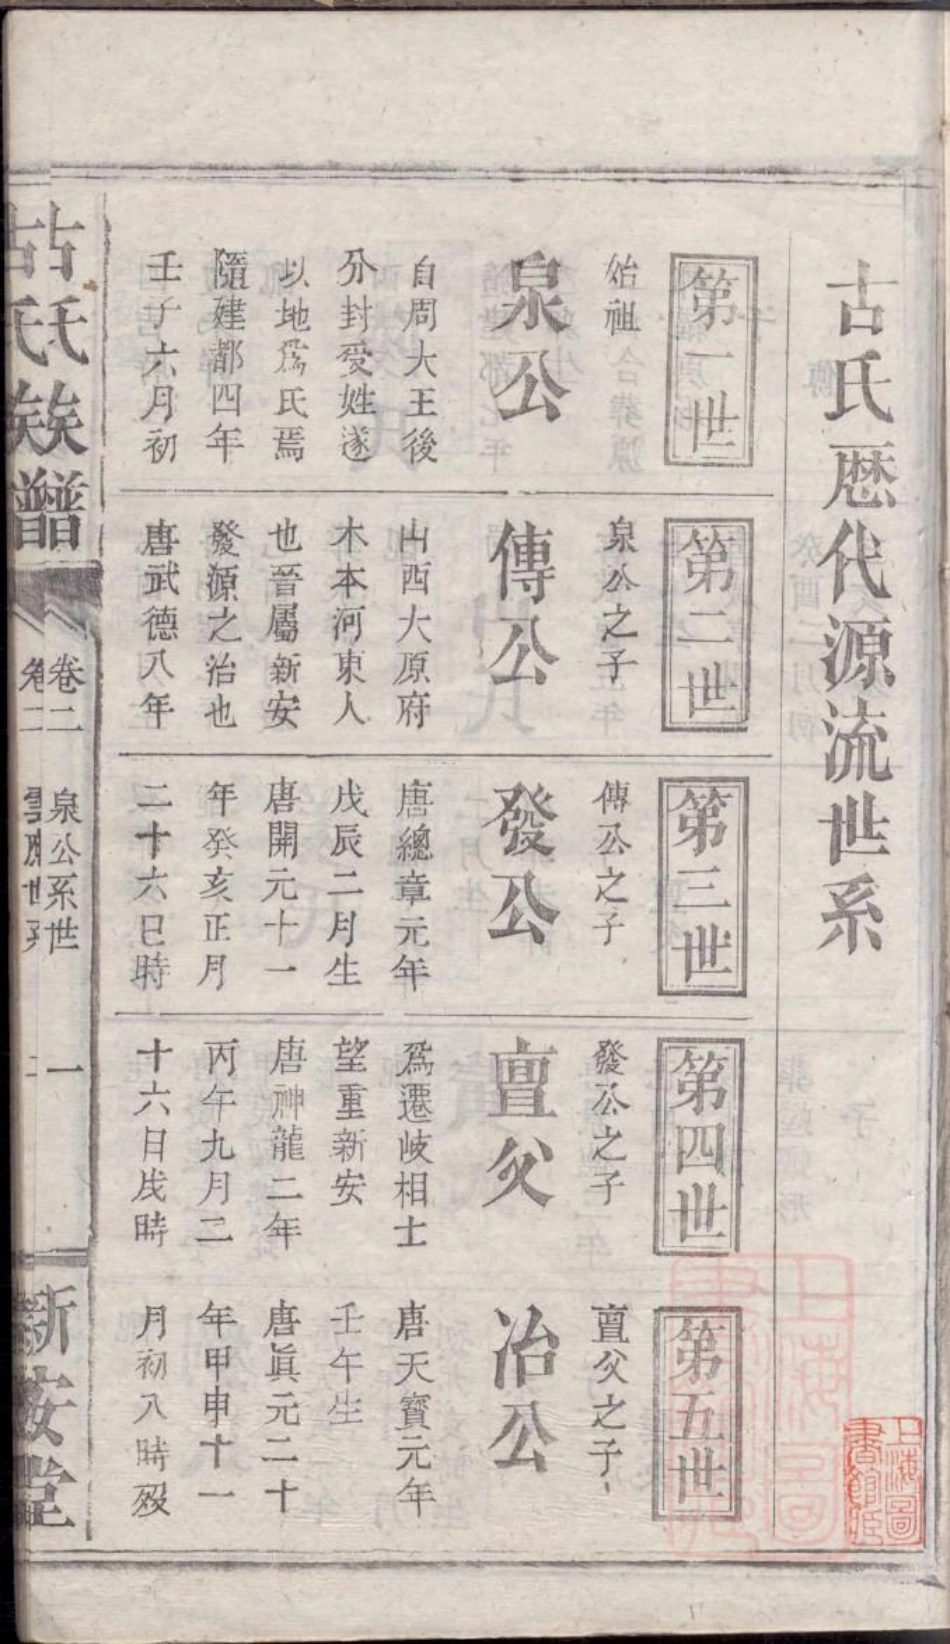 古氏歷代源流世系
第一世
始祖
泉公
自周大王後
分封受姓遂
以地爲氏焉
隨建都四年
壬子六月初
第二世
泉公之子
傳公
山西大原府
木本河東人
也晉屬新安
發源之治也
唐武德八年
第三世
傳公之子
發公
唐總章元年
戊辰二月生
唐開元十一
年癸亥正月
二十六巳時
第四世
發公之子
亶父
爲遷岐相士
望重新安
唐神龍二年
丙午九月二
十六日戌時
第五世
亶父之子
冶公
唐天寶元年
壬午生
唐眞元二十
年甲申十一
月初八時歿
古氏族譜
卷二
泉公系世
一
新安堂
上海圖書館藏